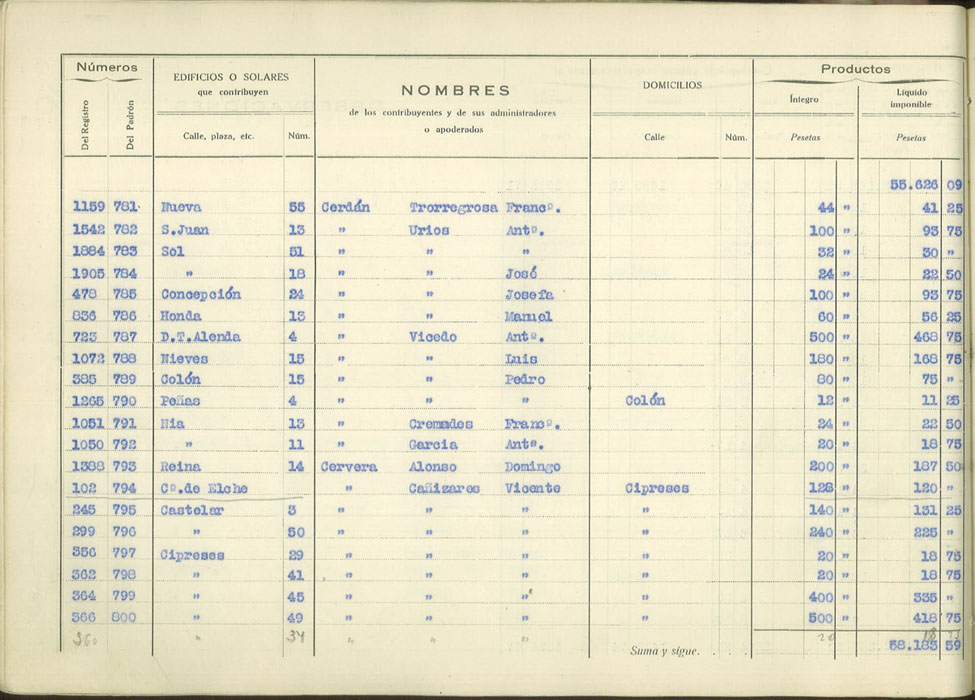 Números
EDIFICIOS O SOLARES
que contribuyen
NOMBRES
de los contribuyentes y de sus administradores
o apoderados
DOMICILIOS
Productos
Íntegro
Líquido
imponible
Del Registro Del Padrón Calle, plaza, etc. Núm. Calle Núm. Pesetas Pesetas
55.626 09
1159 781 Nueva 55 Cerdán Trorregrosa Francº. 44 " 41 25
1542 782 S.Juan 13 " Urios Antº. 100 " 93 75
1884 783 Sol 51 " " " 32 " 30 "
1905 784 " 18 " " José 24 " 22 50
478 785 Concepción 24 " " Josefa 100 " 93 75
836 786 Honda 13 " " Manuel 60 " 56 25
723 787 D.T.Alenda 4 " Vicedo Antº. 500 " 468 75
1072 788 Nieves 15 " " Luis 180 " 168 75
385 789 Colón 15 " " Pedro 80 " 75 "
1265 790 Peñas 4 " " " Colón 12 " 11 25
1051 791 Nia 13 " Cremades Francº. 24 " 22 50
1050 792 " 11 " Garcia Antº. 20 " 18 75
1388 793 Reina 14 Cervera Alonso Domingo 200 " 187 50
102 794 Cº.de Elche " Cañizares Vicente Cipreses 128 " 120 "
245 795 Castelar 3 " " " " 140 " 131 25
299 796 " 50 " " " " 240 " 225 "
356 797 Cipreses 29 " " " " 20 " 18 75
362 798 " 41 " " " " 20 " 18 75
364 799 " 45 " " " " 400 " 335 "
366 800 " 49 " " " " 500 " 418 75
360 " 34 " " " 20
Suma y sigue. . . . 58.183 59